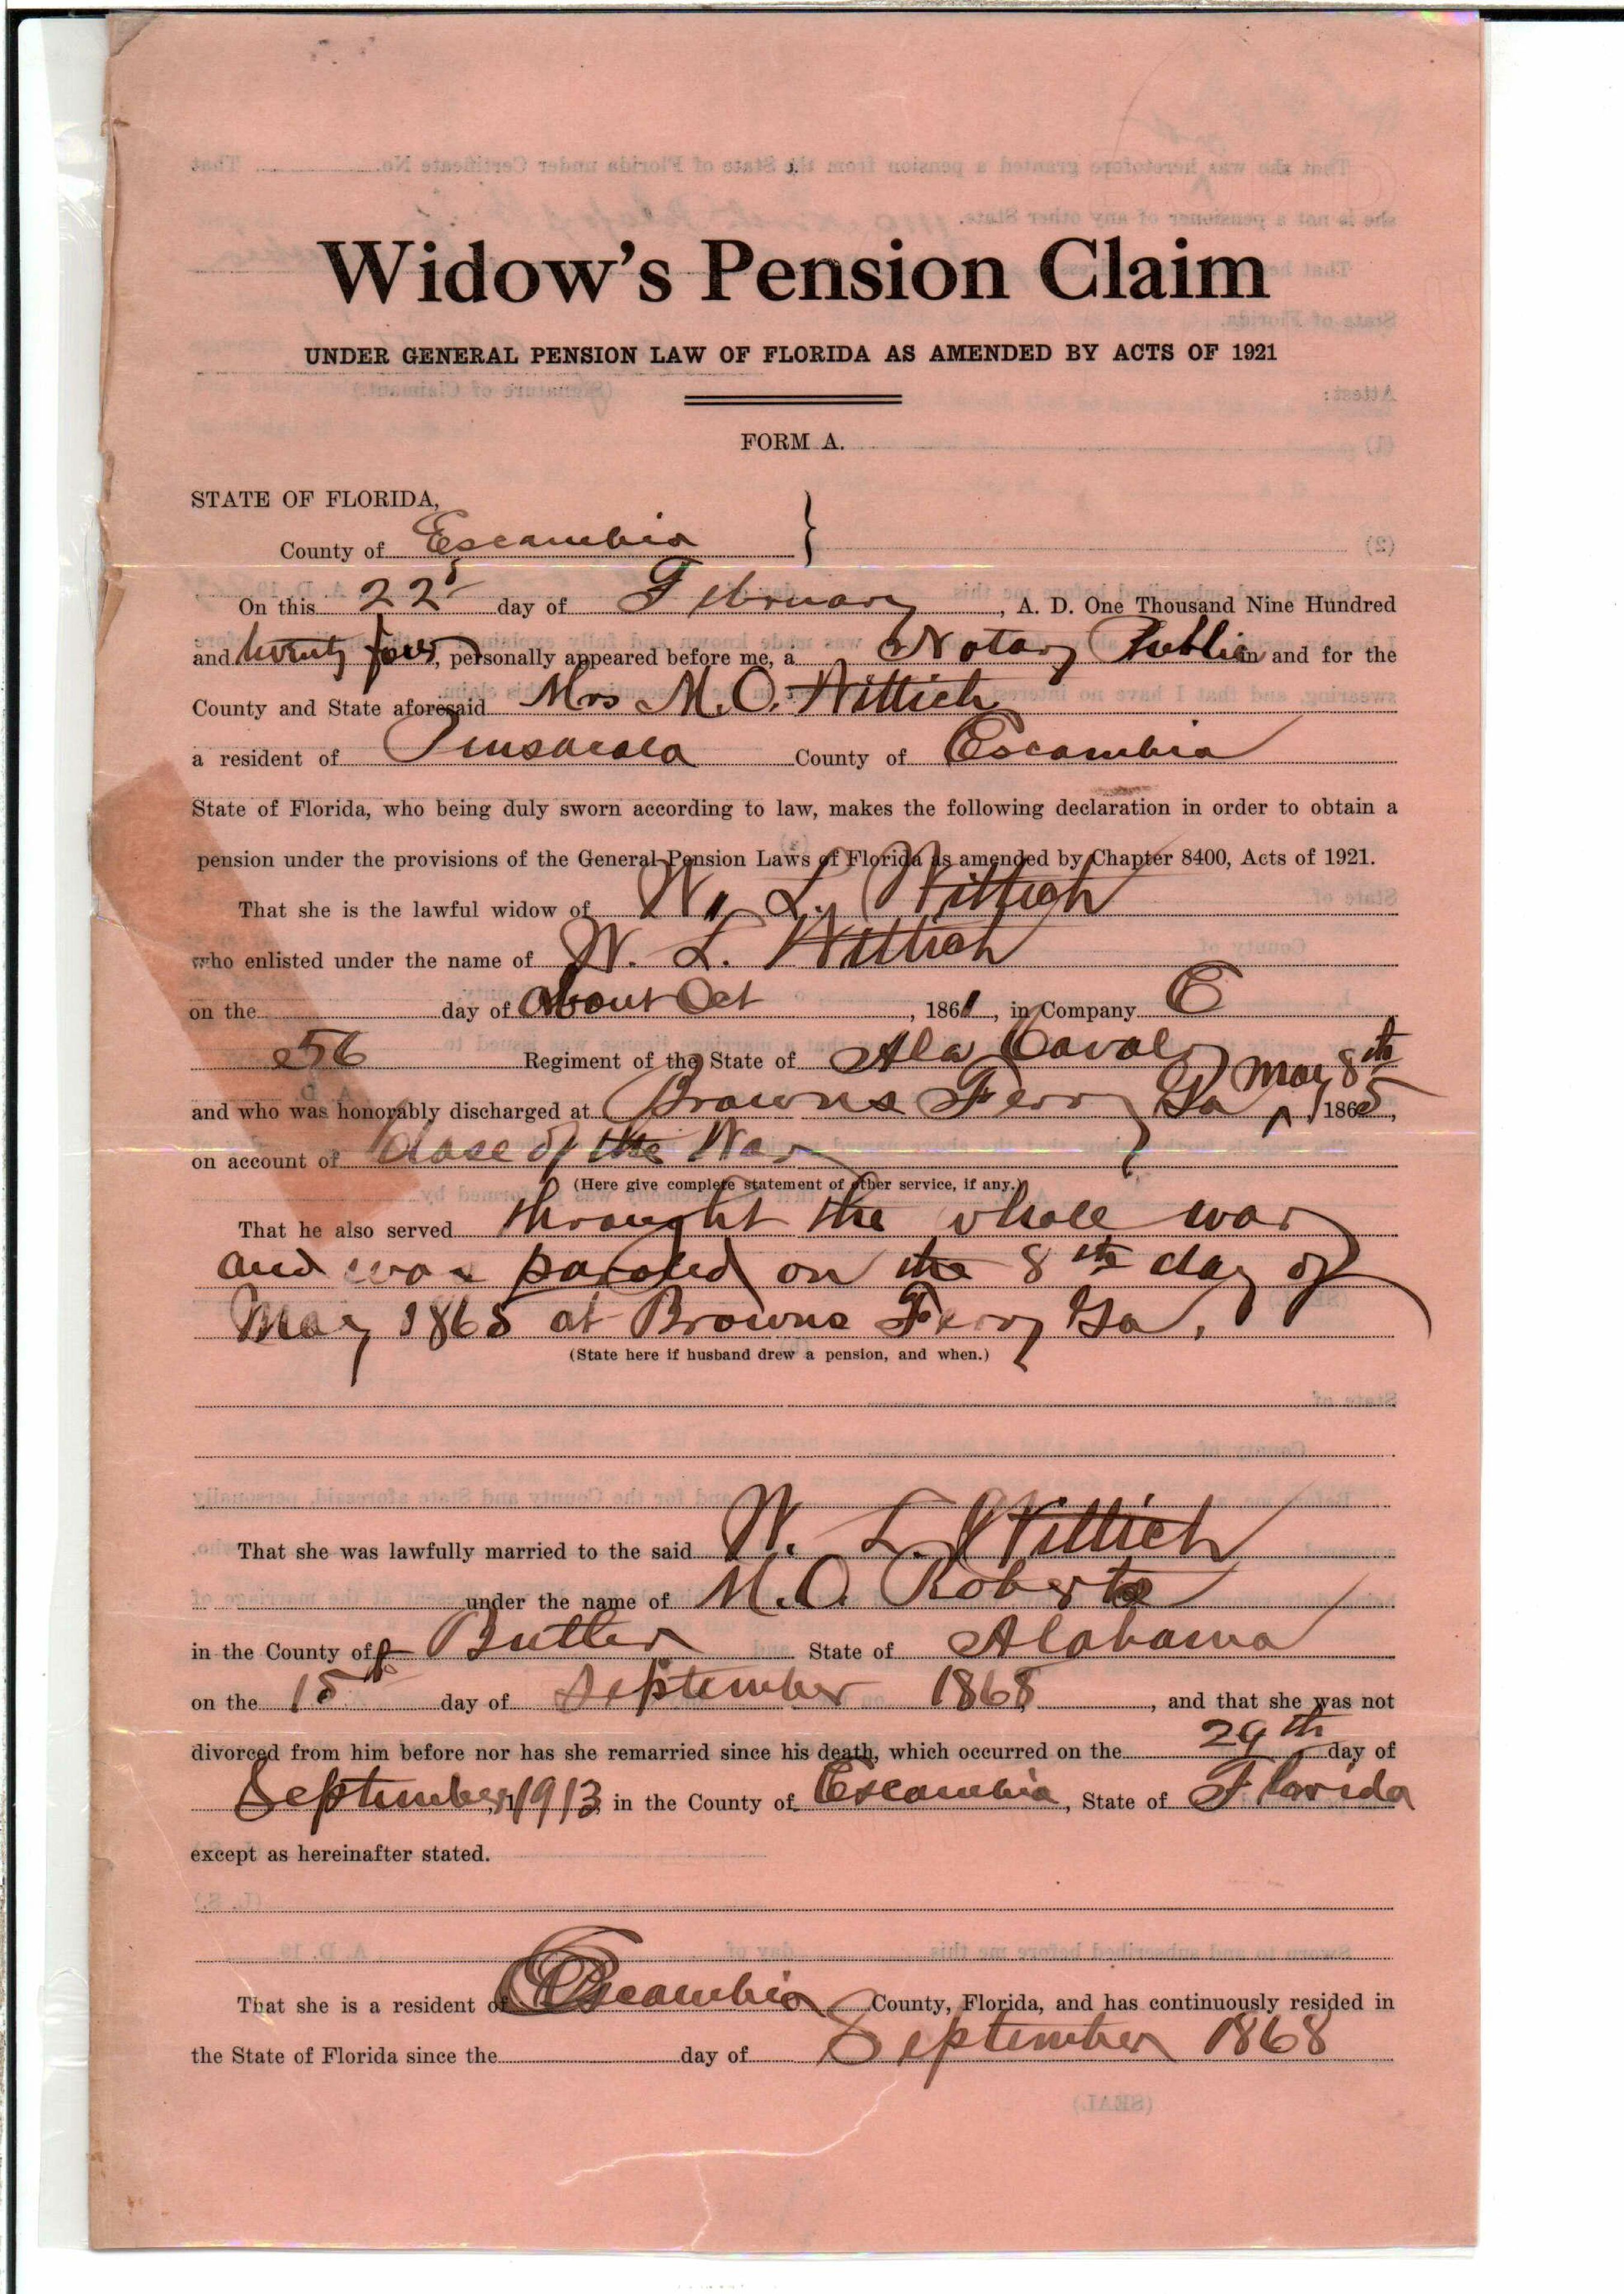 Widow's Pension Claim
UNDER GENERAL PENSION LAW OF FLORIDA AS AMENDED BY ACTS OF 1921
FORM A.
STATE OF FLORIDA,
County of Escambia }
On this 22d day of February, A. D. One Thousand Nine Hundred
and twenty four, personally appeared before me, a Notary Public in and for the
County and State aforesaid Mrs M. O. Wittich
a resident of Pensacola County of Escambia
State of Florida, who being duly sworn according to law, makes the following declaration in order to obtain a
pension under the provisions of the General Pension Laws of Florida as amended by Chapter 8400, Acts of 1921.
That she is the lawful widow of W. L. Wittich
who enlisted under the name of W. L. Wittich
on the day of About Oct, 1861, in Company C
56 Regiment of the State of Ala Cavalry
and who was honorably discharged at Browns Ferry Ga May 8th 1865,
on account of Close of the War
(Here give complete statement of other service, if any.)
That he also served throught the whole war
and was paroled on the 8th day of
May 1865 at Browns Ferry Ga.
(State here if husband drew a pension, and when.)
That she was lawfully married to the said W. L. Wittich
under the name of M. O. Roberts
in the County of Butler State of Alabama
on the 15 day of September 1868, and that she was not
divorced from him before nor has she remarried since his death, which occurred on the 29th day of
September, 1913 in the County of Escambia, State of Florida
except as hereinafter stated.
That she is a resident of Escambia County, Florida, and has continuously resided in
the State of Florida since the day of September 1868